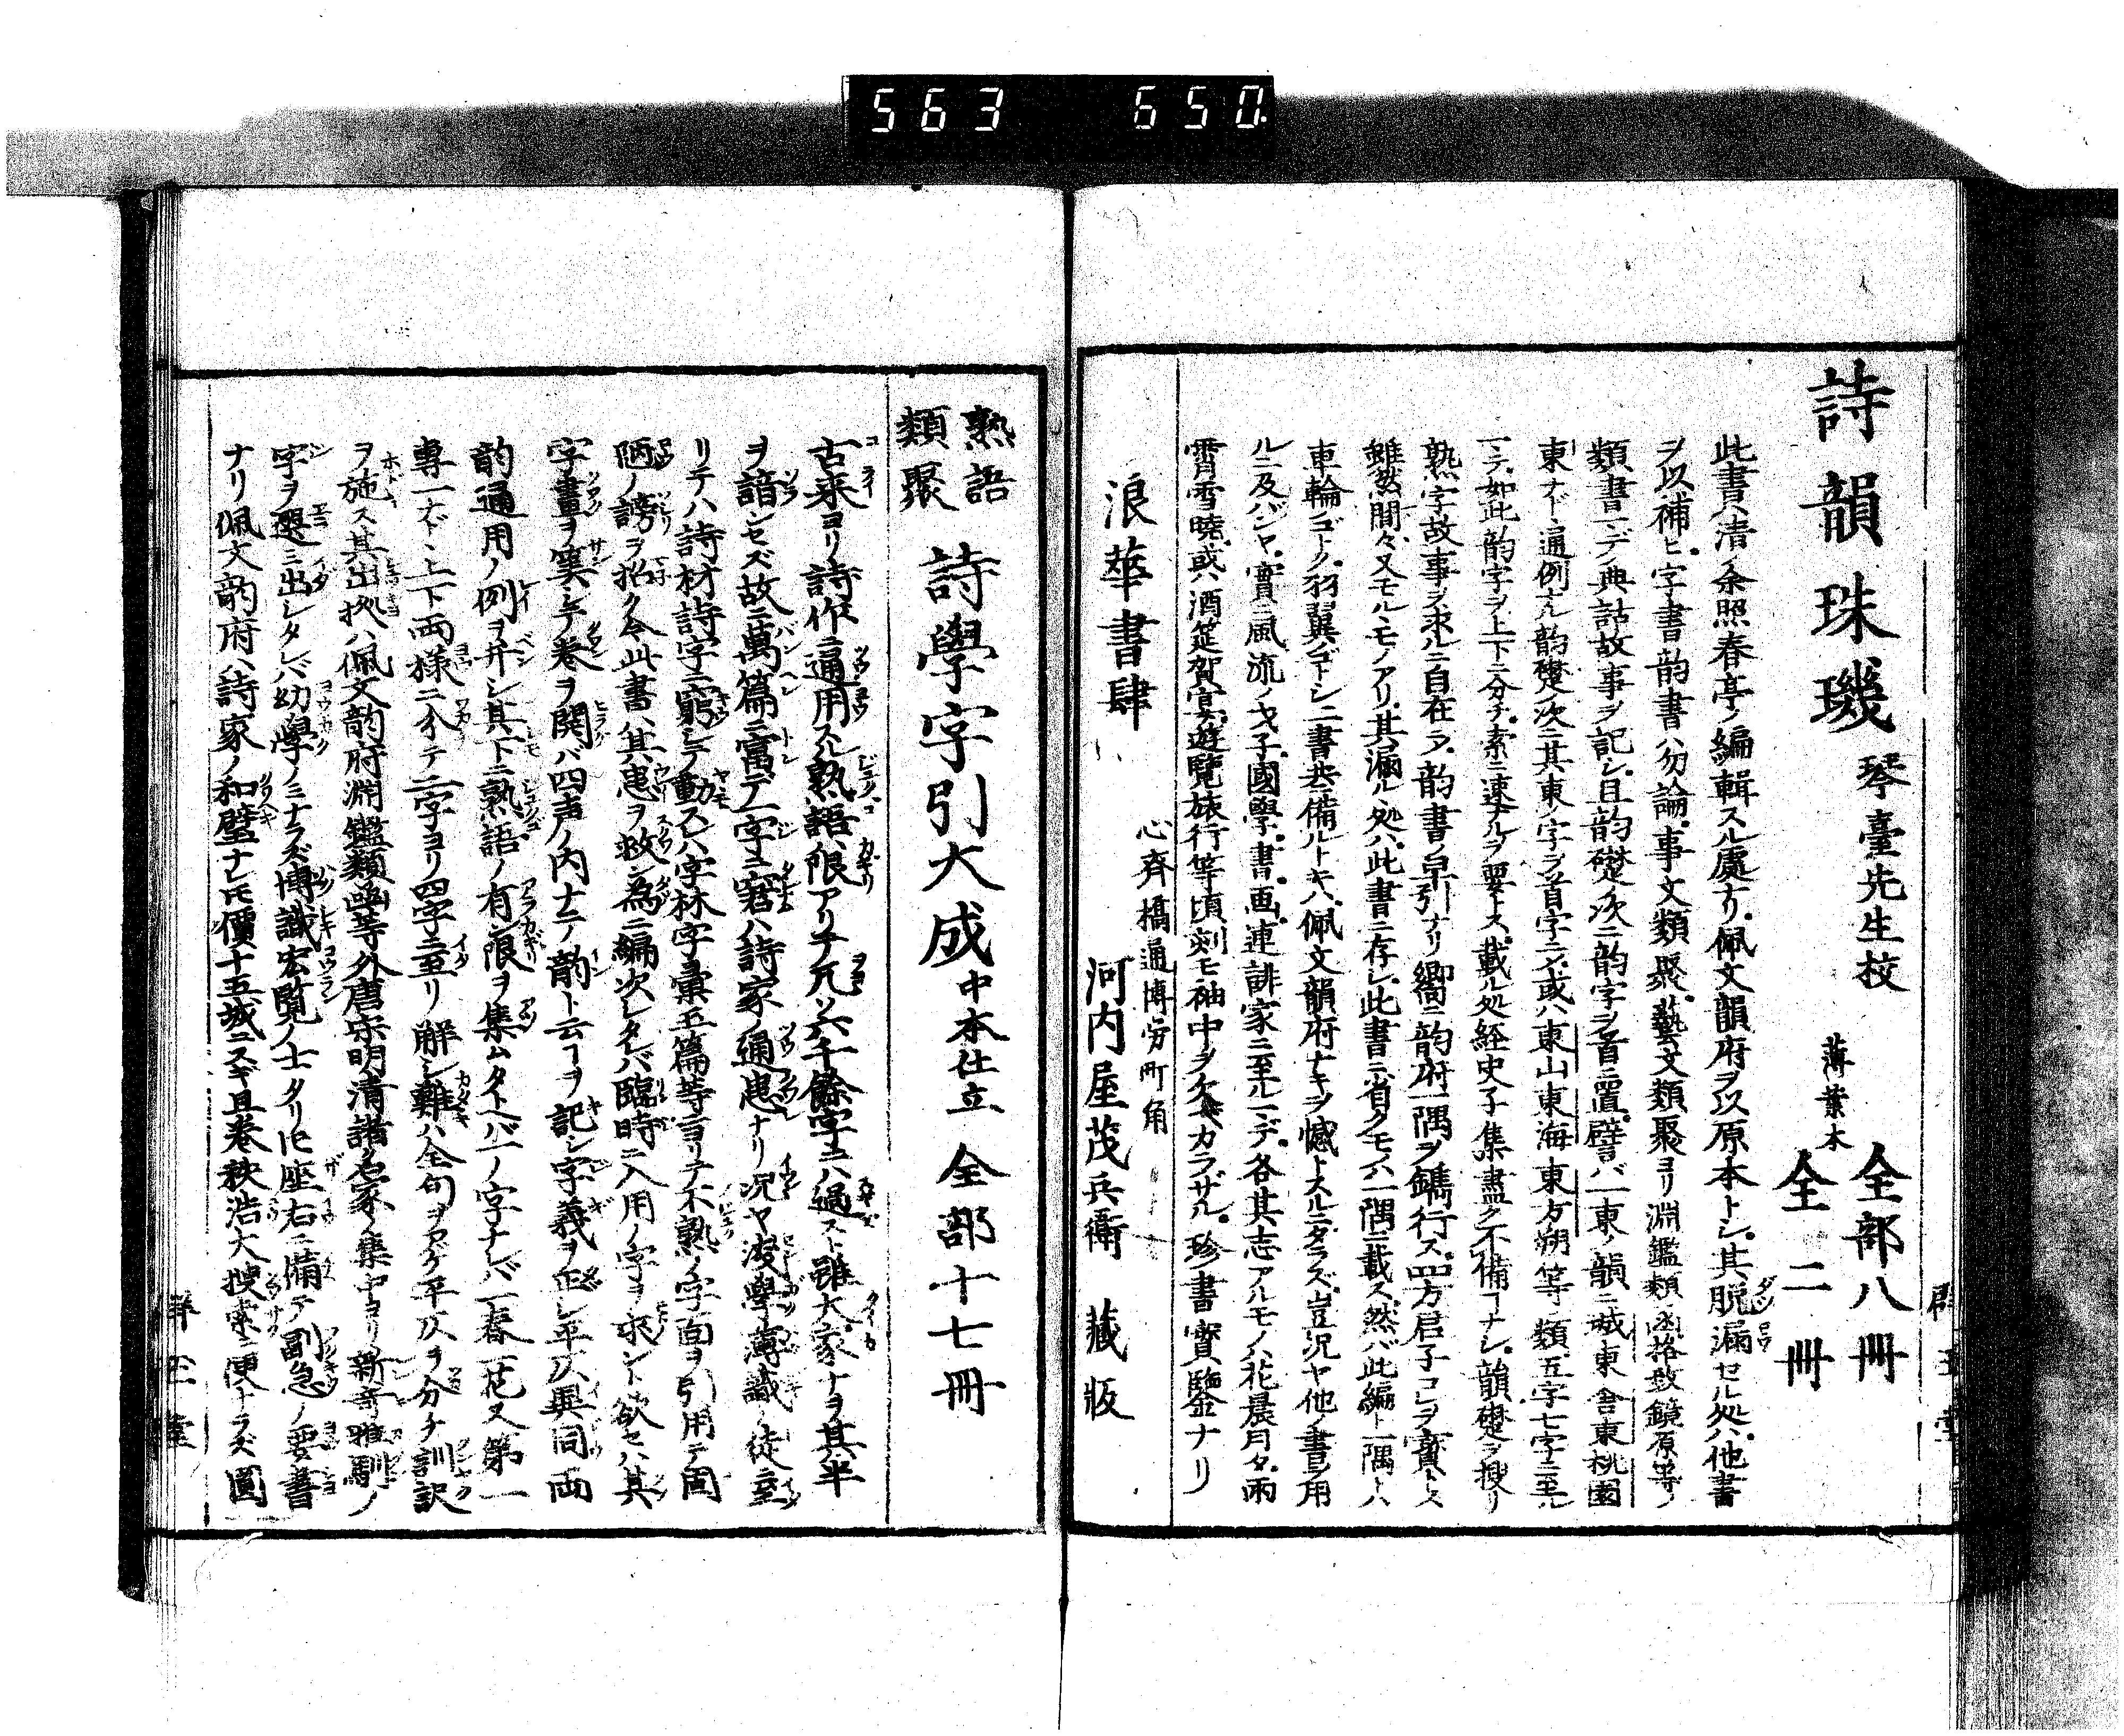 563 650
詩韻珠璣 琴臺先生校 全部八冊
薄葉本 全二冊
此書ハ清ノ余照春亭ノ編輯スル處ナリ佩文韻府ヲ以原本トシ其脱漏セル処ハ他書
ヲ以補ヒ字書韵書ハ勿論事文類聚藝文類聚ヨリ淵鑑類函格致鏡原等ノ
類書マデ典故事ヲ記シ且韵礎ノ次ニ韵字ヲ首ニ置譬バ一東ノ韻ニ城東舎東桃園
東ナドヽ通例ナル韵礎ノ次ニ其東ノ字ヲ首字ニシ或ハ東山東海東方朔等ノ類五字七字ニ至ル
マデ如此韵字ヲ上下ニ分チ索ニ速ナルヲ要トス載ル処経史子集盡ク不備コナシ韻礎ヲ捜リ
熟字故事ヲ求ルニ自在ラ韵書ノ早引ナリ嚮ニ韵府一隅ヲ鐫行ス四方君子コレヲ寶トス
雖然間々又モルヽモノアリ其漏ルヽ処ハ此書ニ存シ此書ニ省クモノハ一隅ニ載ス然バ此編ト一隅トハ
車輪ノゴトク羽翼ノゴトシ二書共備ルトキハ佩文韻府ナキヲ憾トスルニタラズ豈況ヤ他ノ書ヲ用
ルニ及バンヤ實ニ風流ノ才子國學書画連誹家ニ至ルマデ各其志アルモノハ花晨月夕雨
霄雪曉或ハ酒筵賀宴遊覧旅行等頃刻モ袖中ヲ欠ベカラザル珍書寶鑒ナリ
浪華書肆 心齊橋通博労町角
河内屋茂兵衛 蔵板
熟語類聚 詩學字引大成 中本仕立 全部十七冊
古来ヨリ詩作ニ通用スル熟語ハ限アリテ凡ソ六千餘字ニハ過ズト雖大家ナヲ其半
ヲ諳ンセズ故ニ萬篇ニ富デ一字ニ窘ハ詩家ノ通患ナリ況ヤ淺學薄識ノ徒ニ至
リテハ詩材詩字ニ窮シテ動スレハ字林字彙玉篇等ヨリテ不熟ノ字面ヲ引用テ固
陋ノ謗ヲ招ク今此書ハ其患ヲ救ン為ニ編次シタレバ臨時ニ入用ノ字ヲ求ント欲セハ其
字畫ヲ筭シテ巻ヲ開バ四声ノ内ナニノ韵ト云コヲ記シ字義ヲ正シ平仄異同両
韵通用ノ例ヲ弁シ其下ニ熟語ノ有ン限ヲ集ムタトヘバ一ノ字ナレバ一春一花又第一
專一ナドヽ上下両様ニ分テ二字ヨリ四字ニ至リ解シ難ハ全句ヲアゲ平仄ヲ分チ訓訳
ヲ施ス其出拠ハ佩文韵府淵鑑類函等外唐宋明清諸名家ノ集中ヨリ新奇雅馴ノ
字ヲ選ミ出シタレバ幼學ノミナラズ博識宏覧ノ士タリ𪜈座右ニ備テ副急ノ要書
ナリ佩文韵府ハ詩家ノ和璧ナレ𪜈價十五城ニスギ且巻秩浩大捜索ニ便ナラズ圓